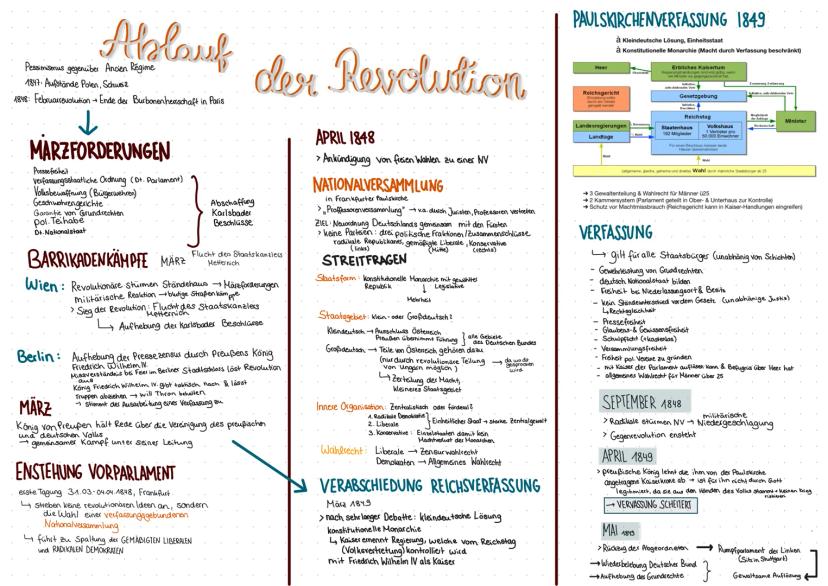 Ablauf
der Revolution
Pessimismus gegenüber Ancien Régime
1847: Aufstände Polen, Schweiz
1848: Februarrevolution → Ende der Burbonenherrschaft in Paris
MÄRZFORDERUNGEN
Pressefreiheit
verfassungsstaatliche Ordnung (Dt. Parlament)
Volksbewaffnung (Bürgerwehren)
Geschworenengerichte
Garantie von Grundrechten
pol. Teilhabe
Dt. Nationalstaat
Abschaffung
Karlsbader
Beschlüsse
BARRIKADENKÄMPFE MÄRZ
Flucht des Staatskanzlers
Metternich
Wien: Revolutionäre stürmen Ständehaus → Märzforderungen
militärische Reaktion → blutige Straßenkämpfe
> Sieg der Revolution: Flucht des Staatskanzlers
Metternich
↳ Aufhebung der Karlsbader Beschlüsse
Berlin: Aufhebung der Pressezensus durch Preußens König
Friedrich Wilhelm IV.
Missverständnis bei Feier im Berliner Stadtschloss löst Revolution
aus
König Friedrich Wilhelm IV. gibt taktisch nach & lässt
Truppen abziehen → will Thron behalten
→ stimmt der Ausarbeitung einer Verfassung zu
MÄRZ
König von Preußen hält Rede über die Vereinigung des preußischen
und deutschen Volks
→ gemeinsamer Kampf unter seiner Leitung
ENSTEHUNG VORPARLAMENT
erste Tagung 31.03-04.04 1848, Frankfurt
↳ streben keine revolutionären Ideen an, sondern
die Wahl einer verfassungsgebundenen
Nationalversammlung
↳ führt zu Spaltung der GEMÄßIGTEN LIBERALEN
und RADIKALEN DEMOKRATEN
APRIL 1848
> Ankündigung von freien Wahlen zu einer NV
NATIONALVERSAMMLUNG
in Frankfurter Paulskirche
> "Professorenversammlung" → v.a. durch Juristen, Professoren vertreten
ZIEL: Neuordnung Deutschlands gemeinsam mit den Fürsten
> keine Parteien: dafür politische Fraktionen/Zusammenschlüsse
radikale Republikaner, gemäßigte Liberale, Konservative
(links) (Mitte) (rechts)
STREITFRAGEN
Staatsform: konstitutionelle Monarchie mit gewählter
Republik ↓ Legislative
Mehrheit
Staatsgebiet: klein- oder Großdeutsch?
Kleindeutsch → Ausschluss Österreich
Preußen übernimmt Führung
alle Gebiete
des Deutschen Bundes
Großdeutsch → Teile von Österreich gehören dazu
(nur durch revolutionäre Teilung
von Ungarn möglich)
→ da wo dt
gesprochen
wird
↳ Zerteilung der Macht,
kleineres Staatsgebiet
Innere Organisation: Zentralistisch oder föderal?
1. Radikale Demokraten
2. Liberale
Einheitlicher Staat → starke Zentralgewalt
3. Konservative: Einzelstaaten damit kein
Machtverlust der Monarchen
Wahlrecht: Liberale → Zensuswahlrecht
Demokraten → Allgemeines Wahlrecht
VERABSCHIEDUNG REICHSVERFASSUNG
März 1849
> nach sehr langer Debatte: kleindeutsche Lösung
konstitutionelle Monarchie
↳ Kaiser ernennt Regierung, welche vom Reichstag
(Volksvertretung) kontrolliert wird
mit Friedrich Wilhelm IV als Kaiser
PAULSKIRCHENVERFASSUNG 1849
à Kleindeutsche Lösung, Einheitsstaat
à Konstitutionelle Monarchie (Macht durch Verfassung beschränkt)
Heer
Erbliches Kaisertum
Reichsgericht
Gesetzgebung
Reichstag
Staatenhaus
192 Mitglieder
Volkshaus
1 Vertreter pro
50.000 Einwohner
Landesregierungen
Landtage
Minister
Wahl
Wahl
→ 3 Gewaltenteilung & Wahlrecht für Männer ü25
→ 2 Kammersystem (Parlament geteilt in Ober- & Unterhaus zur Kontrolle)
→ Schutz vor Machtmissbrauch (Reichsgericht kann in Kaiser-Handlungen eingreifen)
VERFASSUNG
↳ gilt für alle Staatsbürger (unabhängig von Schichten)
- Gewährleistung von Grundrechten
- deutsch Nationalstaat bilden
- Freiheit bei Niederlassungsort & Besitz
- kein Ständeunterschied vor dem Gesetz (unabhängige Justiz)
↳ Rechtsgleichheit
- Pressefreiheit
- Glaubens- & Gewissensfreiheit
- Schulpflicht (+kostenlos)
- Versammlungsfreiheit
- Freiheit pol. Vereine zu gründen
- mit Kaiser der Parlament auflösen kann & Befugnis über Heer hat
- allgemeines Wahlrecht für Männer über 25
SEPTEMBER 1848
> Radikale stürmen NV → militärische
Niedergeschlagung
> Gegenrevolution ensteht
APRIL 1849
> preußische König lehnt die ihm von der Paulskirche
angetragene Kaiserkrone ab → ist für ihn nicht durch Gott
legitimiert, da sie aus den Händen des Volks stammt + keinen Krieg
riskieren
→ VERVASSUNG SCHEITERT
MAI 1849
> Rückzug der Abgeordneten → Rumpfparlament der Linken
(Sitz in Stuttgart)
→ Wiederbelebung Deutscher Bund
→ Aufhebung der Grundrechte
Gewaltsame Auflösung